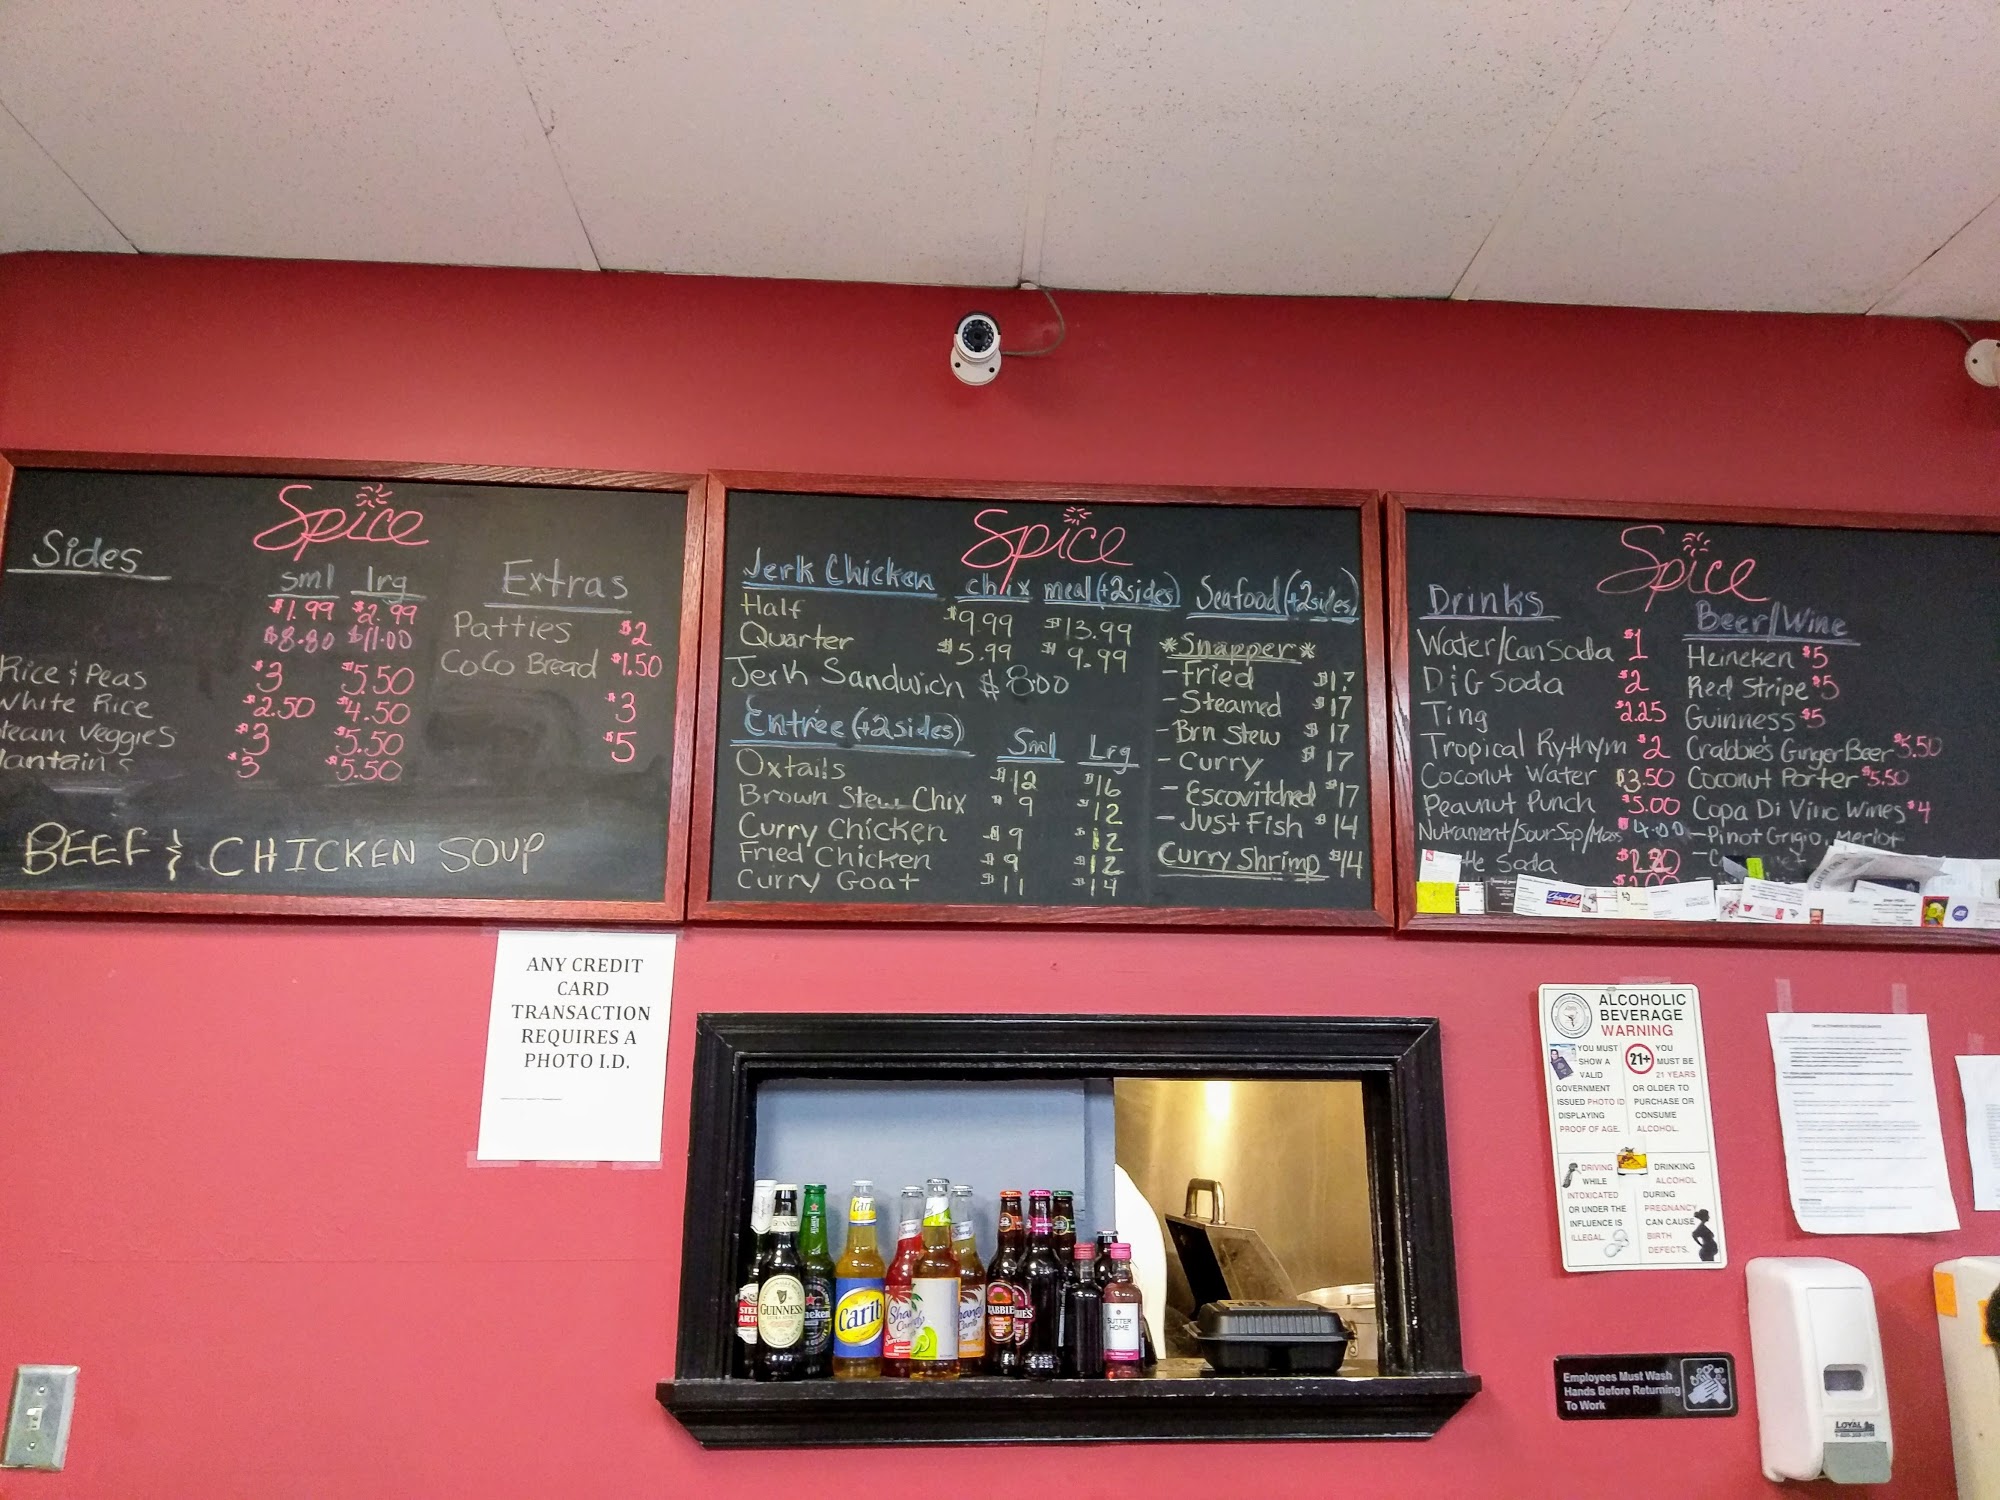 Spice
Sides
sml lrg
$1.99 $2.99
$8.80 $11.00
Rice & Peas $3 $5.50
White Rice $2.50 $4.50
team Veggies $3 $5.50
lantains $3 $5.50
Extras
Patties $2
CoCo Bread $1.50
$3
$5
BEEF & CHICKEN SOUP
Spice
Jerk Chicken chix meal (+2sides)
Half $9.99 $13.99
Quarter $5.99 $9.99
Jerk Sandwich $8.00
Entrée (+2sides) Sml Lrg
Oxtails $12 $16
Brown Stew Chix $9 $12
Curry Chicken $9 $12
Fried Chicken $9 $12
Curry Goat $11 $14
Seafood (+2sides)
*Snapper*
- Fried $17
- Steamed $17
- Brn Stew $17
- Curry $17
- Escovitched $17
- Just Fish $14
Curry Shrimp $14
Spice
Drinks
Water/Can Soda $1
DiG Soda $2
Ting $2.25
Tropical Rythym $2
Coconut Water $3.50
Peaunut Punch $5.00
Nutrament/Sour Sop/Moss $4.00
Soda
Beer/Wine
Heineken $5
Red Stripe $5
Guinness $5
Crabbie's Ginger Beer $5.50
Coconut Porter $5.50
Copa Di Vino Wines $4
- Pinot Grigio, Merlot
ANY CREDIT
CARD
TRANSACTION
REQUIRES A
PHOTO I.D.
ALCOHOLIC
BEVERAGE
WARNING
YOU MUST
SHOW A
VALID
GOVERNMENT
ISSUED PHOTO ID
DISPLAYING
PROOF OF AGE.
21+
YOU
MUST BE
21 YEARS
OR OLDER TO
PURCHASE OR
CONSUME
ALCOHOL.
DRIVING
WHILE
INTOXICATED
OR UNDER THE
INFLUENCE IS
ILLEGAL.
DRINKING
ALCOHOL
DURING
PREGNANCY
CAN CAUSE
BIRTH
DEFECTS.
GUINNESS
Carib
Carib
SUTTER
HOME
Employees Must Wash
Hands Before Returning
To Work
LOYAL